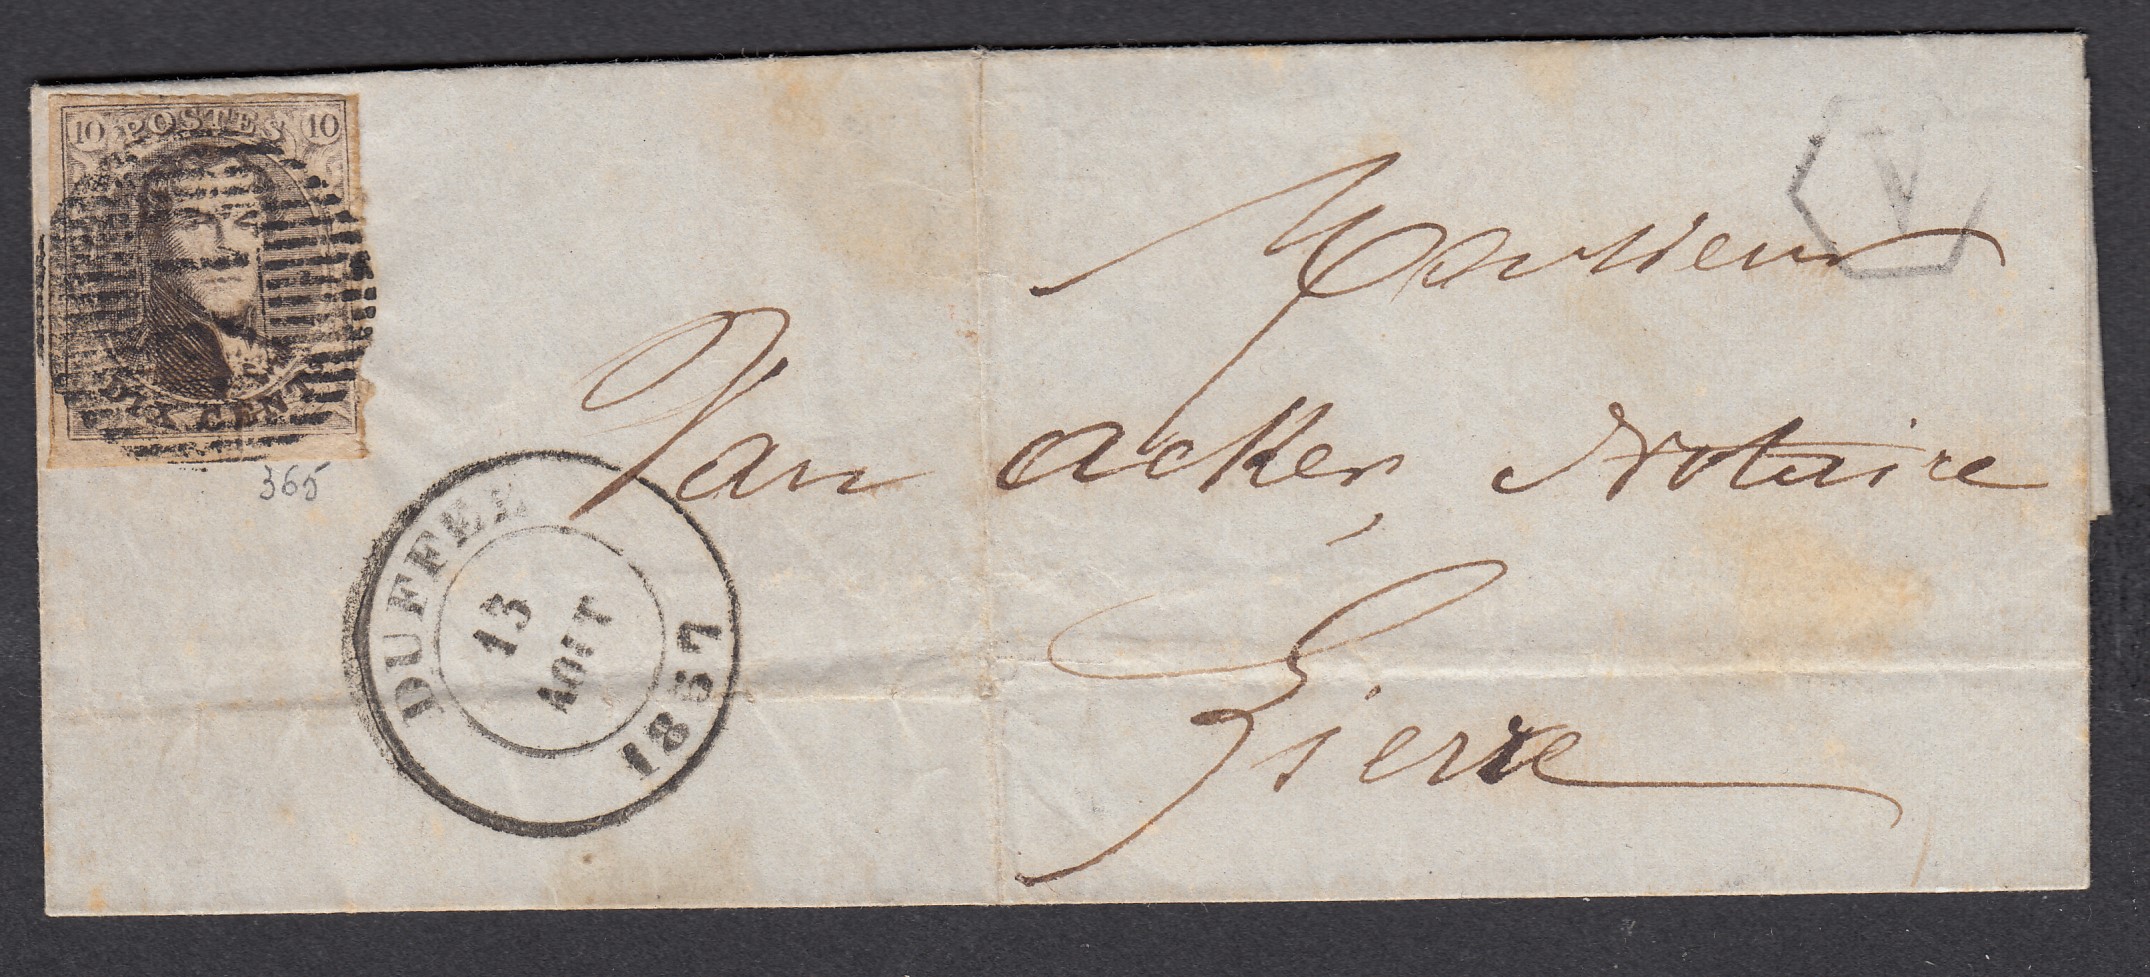 10 POSTES 10
DIX CENT
365
DUFFEL
13
AOUT
1857
V
Monsieur
Van Acker Notaire
Lierre